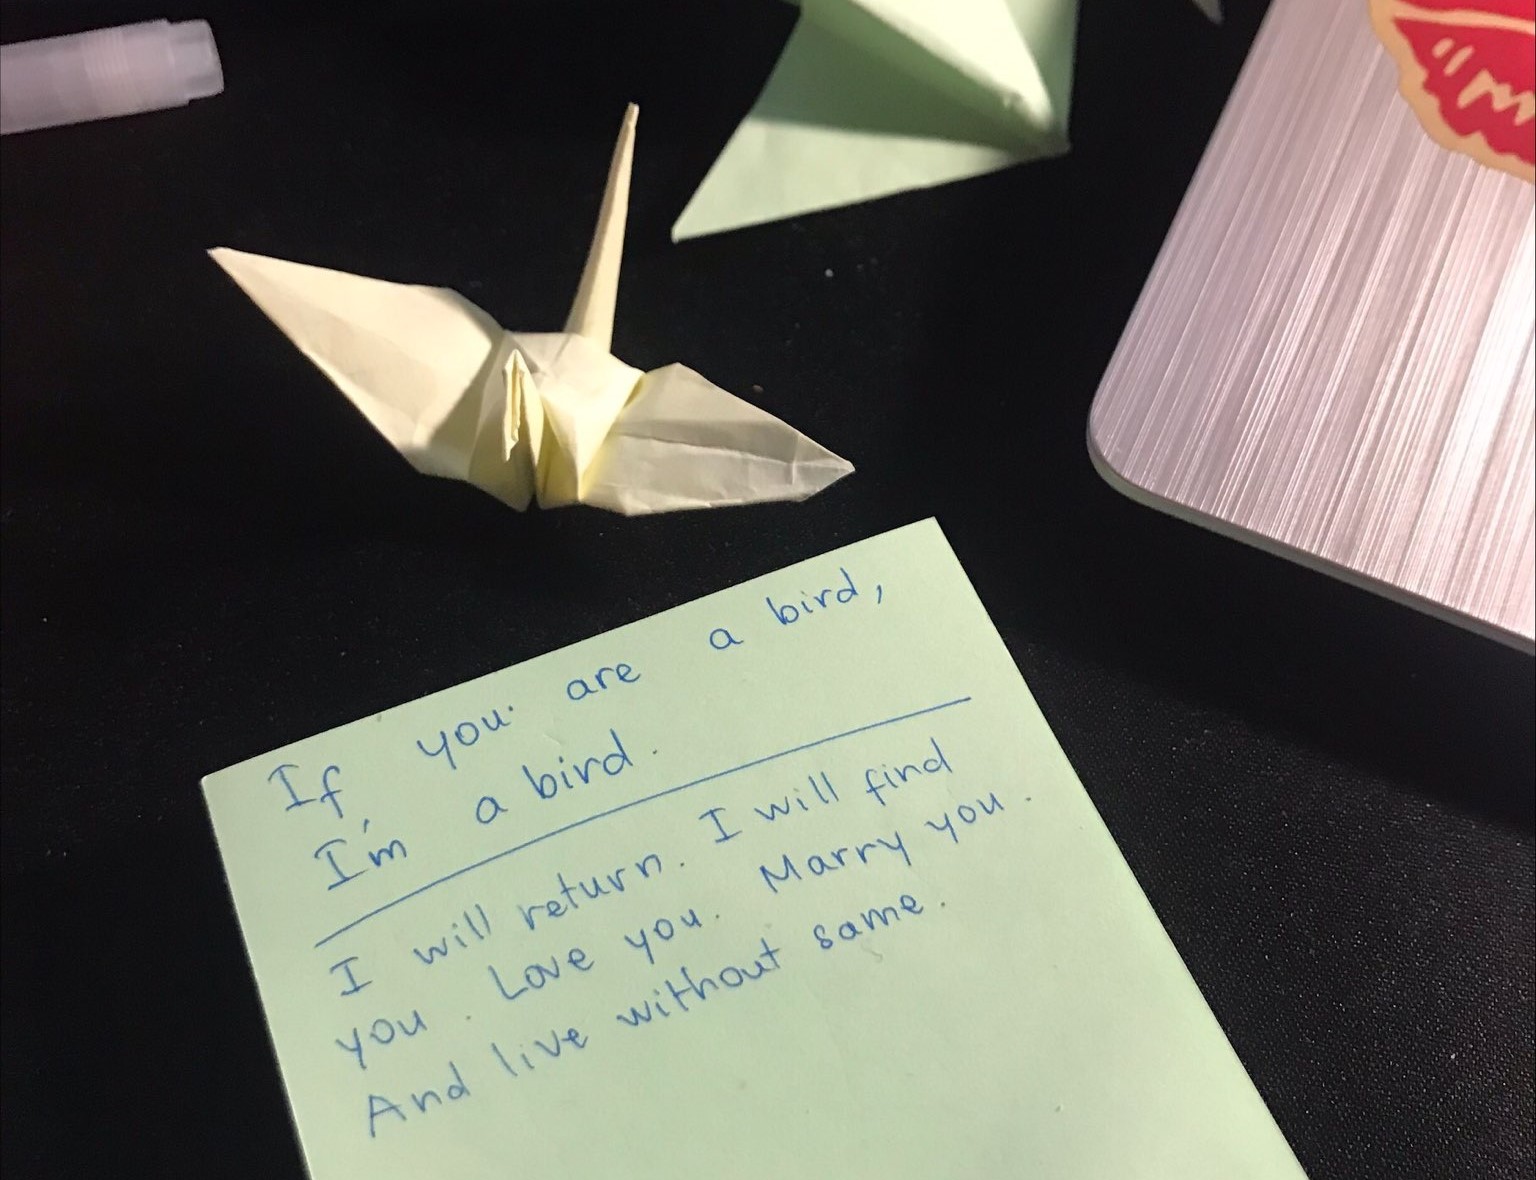 If you are a bird,
I'm a bird.
I will return. I will find
you. Love you. Marry you.
And live without same.